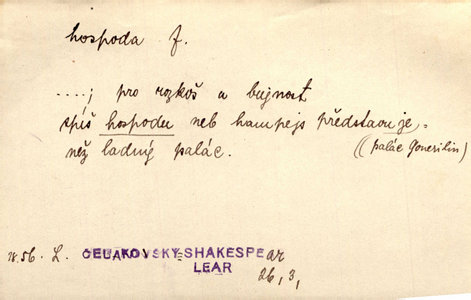 hospoda f.
....; pro rozkoš a bujnost
spíš hospodu neb hampejs představuje,
než ladný palác.
((palác Gonerilin)
1856. L. ČELAKOVSKÝ-SHAKESPEar
LEAR
26, 3,